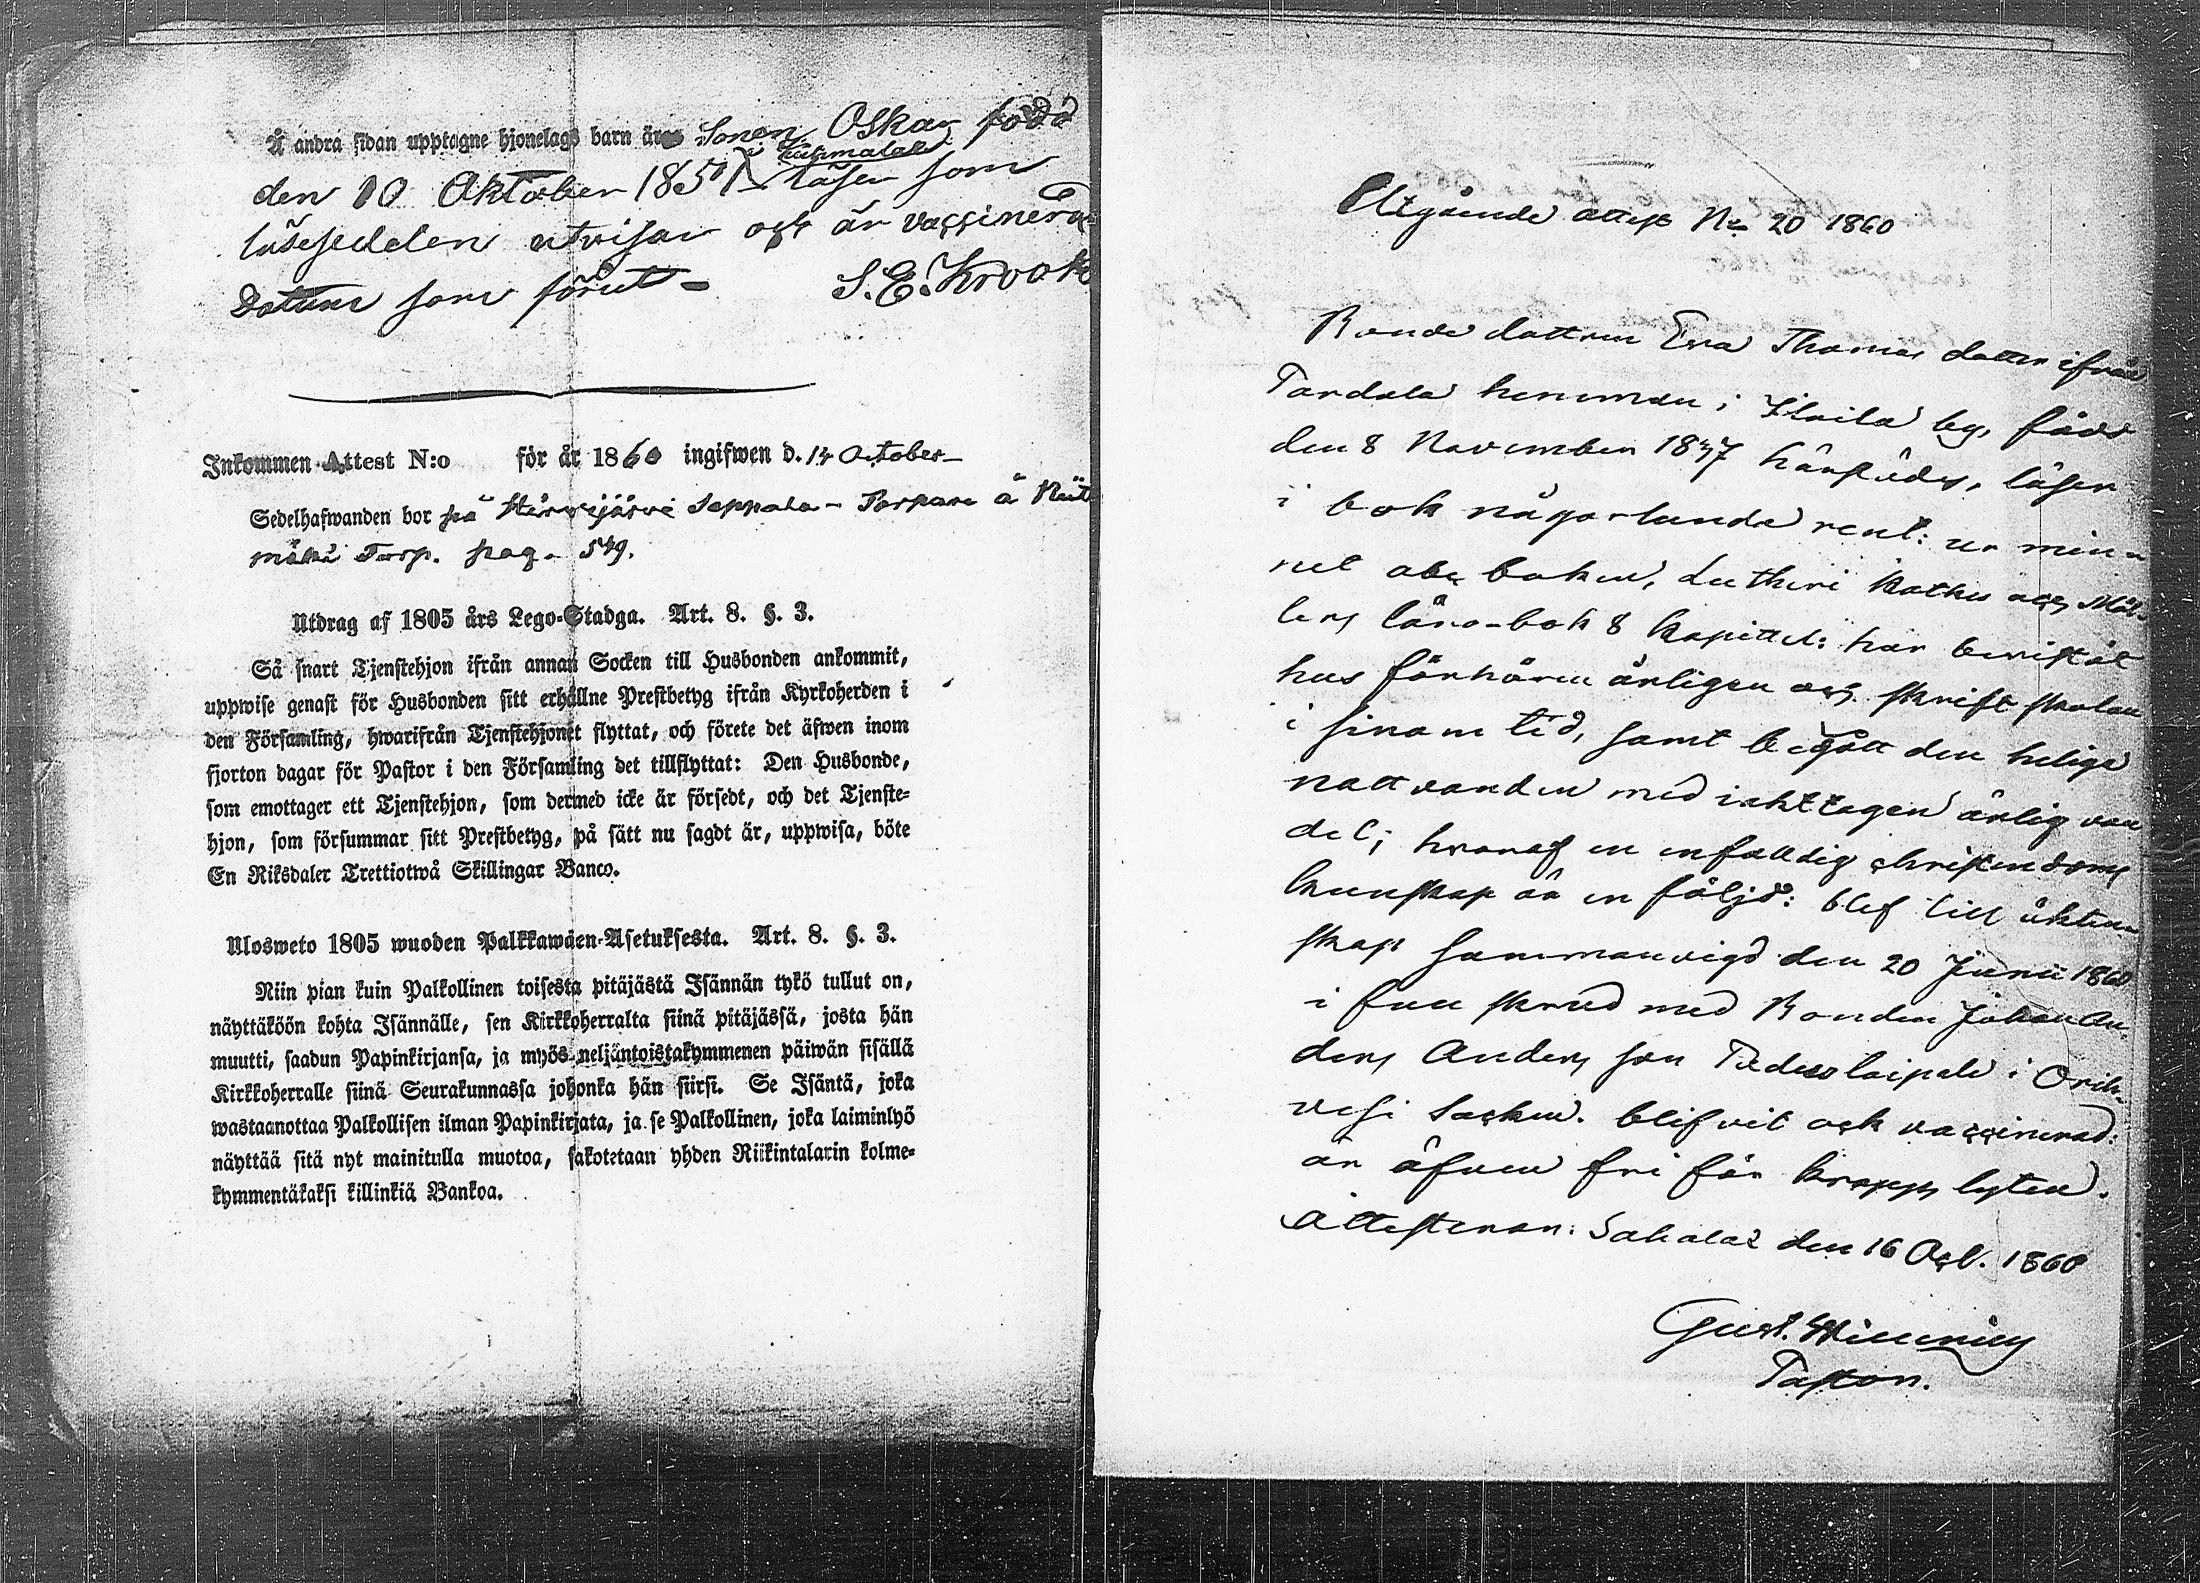 Å andra sidan upptagne hjonelags barn är Sonen Oskar född
i Kuhmalax
den 10 Oktober 1851 läser som
läsesedelen utvisar och är vaccinerad
Datum som förut- S. E. Krook
Inkommen Attest N:o för år 1860 ingifwen d. 14 October
Sedelhafwanden bor på Hirvijärvi Seppälä - Torpare å
mäki Torp. pag. 549.
Utdrag af 1805 års Lego-Stadga. Art. 8. §. 3.
Så snart Tjenstehjon ifrån annan Socken till Husbonden ankommit,
uppwise genast för Husbonden sitt erhållne Prestbetyg ifrån Kyrkoherden i
den Församling, hwarifrån Tjenstehjonet flyttat, och förete det äfwen inom
fjorton dagar för Pastor i den Församling det tillflyttat: Den Husbonde,
som emottager ett Tjenstehjon, som dermed icke är försedt, och det Tjenste-
hjon, som försummar sitt Prestbetyg, på sätt nu sagdt är, uppwisa, böte
En Riksdaler Trettiotwå Skillingar Banco.
Ulosweto 1805 wuoden Palkkawäen-Asetuksesta. Art. 8. §. 3.
Niin pian kuin Palkollinen toisesta pitäjästä Isännän tykö tullut on,
näyttäköön kohta Isännälle, sen Kirkkoherralta siinä pitäjässä, josta hän
muutti, saadun Papinkirjansa, ja myös neljäntoistakymmenen päiwän sisällä
Kirkkoherralle siinä Seurakunnassa johonka hän siirsi. Se Isäntä, joka
wastaanottaa Palkollisen ilman Papinkirjata, ja se Palkollinen, joka laiminlyö
näyttää sitä nyt mainitulla muotoa, sakotetaan yhden Riikintalarin kolme-
kymmentäkaksi killinkiä Bankoa.
Utgående attest No 20 1860
Bonde dottren Eva Thomas dotter ifrån
Tardala hemman i Ilvila by, född
den 8 November 1837 härstädes, läser
i bok någorlunda rent: ur min-
net abc boken, Lutheri kathes och Möl-
lers läro-bok 8 kapittel: har bevistat
hus förhören årligen och skrift skolan
i sinom tid, samt begått den heliga
nattvarden med iakttagen ärlig van
del; hvaraf en enfaldig christendoms
kunskap är en följd: blef till äkten-
skap sammanvigd den 20 Junii 1860
i full skrud med Bonden Johan An-
ders Anders son Tädesslaipale i Orih-
vesi Socken. blifvit ock vaccinerad:
är äfven fri för kropps lyten.
Attesterar: Sahalax den 16 Oct. 1860
Gust. Winning
Pastor.